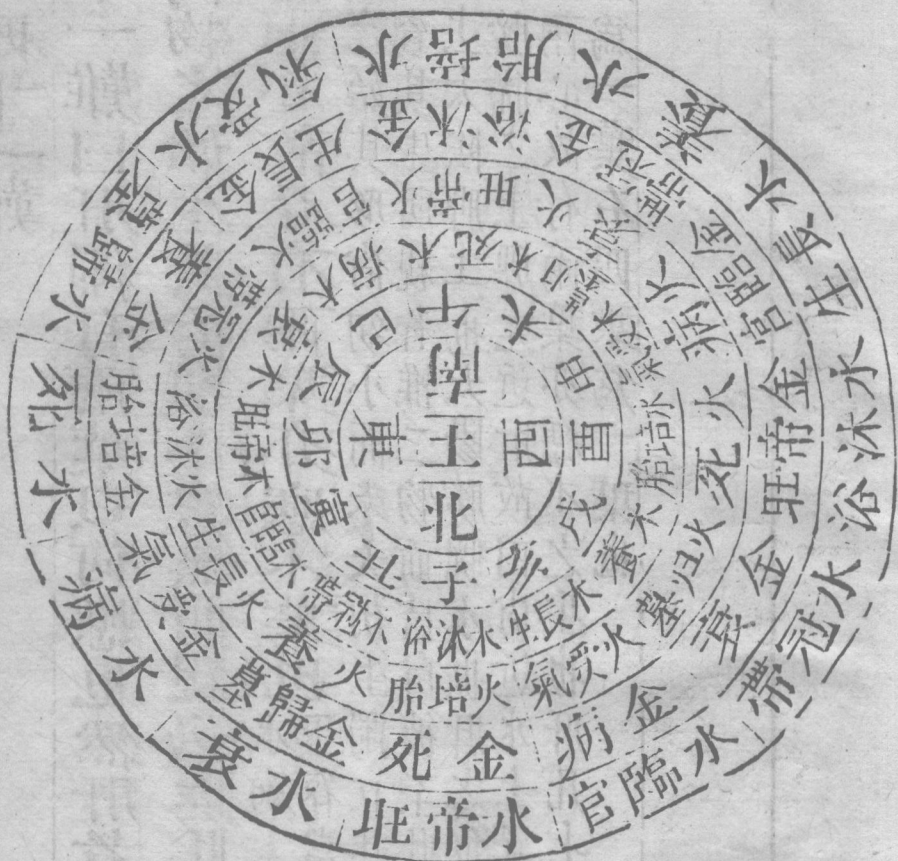 南
東 土 西
北
子 丑 寅 卯 辰 巳 午 未 申 酉 戌 亥
木沐浴 木冠帶 木臨官 木帝旺 木衰 木病 木死 木归墓 木受氣 木培胎 木養 木長生
火培胎 火養 火長生 火沐浴 火冠帶 火臨官 火帝旺 火衰 火病 火死 火归墓 火受氣
金死 金歸墓 金受氣 金培胎 金養 金長生 金沐浴 金冠帶 金臨官 金帝旺 金衰 金病
水帝旺 水衰 水病 水死 水歸墓 水受氣 水培胎 水養 水長生 水沐浴 水冠帶 水臨官